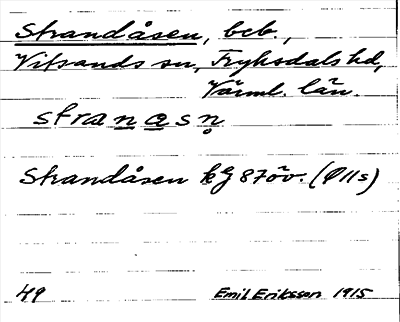 Strandåsen, bcb.,
Vitsands sn, Fryksdals hd,
Värml. län.
stranasn̥
Strandåsen kg 87öv. (Ø11s)
49 Emil Eriksson 1915